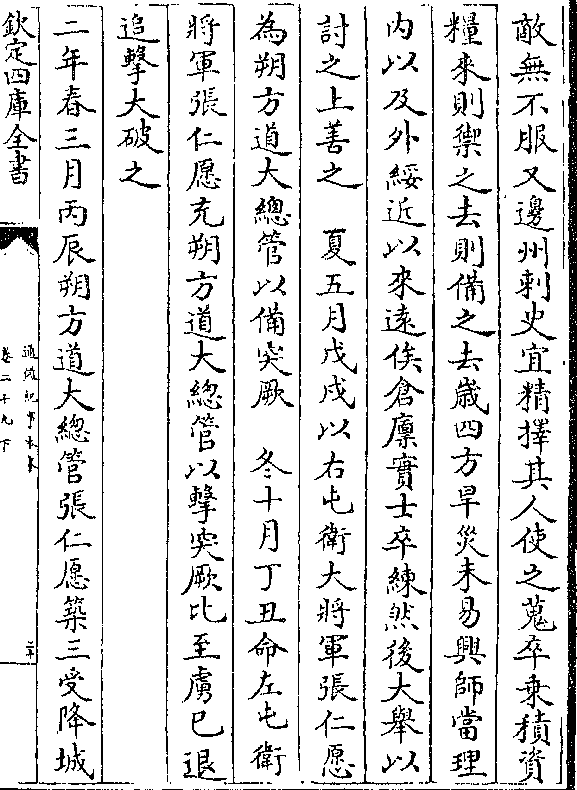 敵無不服又邊州刺史宜精擇其人使之蒐卒乗積資
糧來則禦之去則備之去歲四方旱災未易興師當理
内以及外綏近以來遠俟倉廩實士卒練然後大舉以
討之上善之　夏五月戊戌以右屯衛大將軍張仁愿
為朔方道大總管以備突厥　冬十月丁丑命左屯衛
將軍張仁愿充朔方道大總管以擊突厥比至虜已退
追擊大破之
二年春三月丙辰朔方道大總管張仁愿築三受降城
欽定四庫全書
通鑑紀事本末
卷二十九下